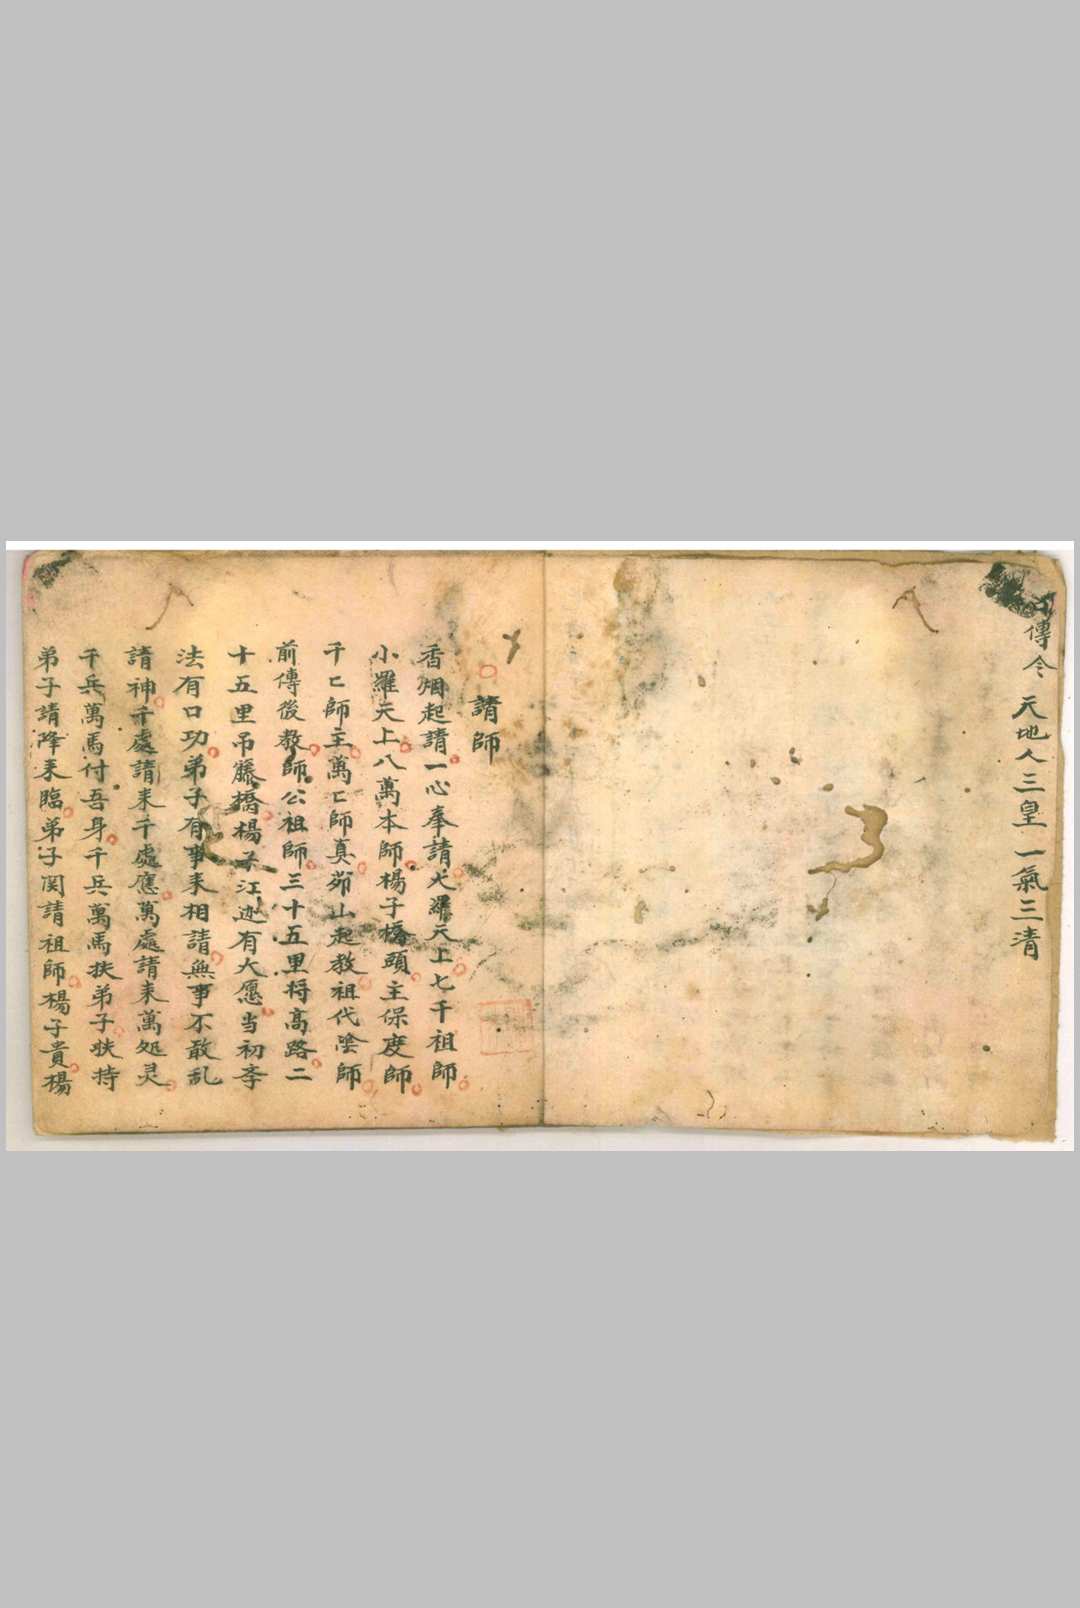 傳令 天地人三皇一氣三清
請師
香烟起請一心奉請大羅天上七千祖師
小羅天上八萬本師楊子橋頭主保度師
千匕師主萬匕師真茆山起教祖代陰師
前傳後教師公祖師三十五里将高路二
十五里吊藤橋楊子江边有大愿当初李
法有口功弟子有事来相請無事不敢乱
請神千處請来千處應萬處請来萬処灵
千兵萬馬付吾身千兵萬馬扶弟子扶持
弟子請降来臨弟子関請祖師楊子貴楊